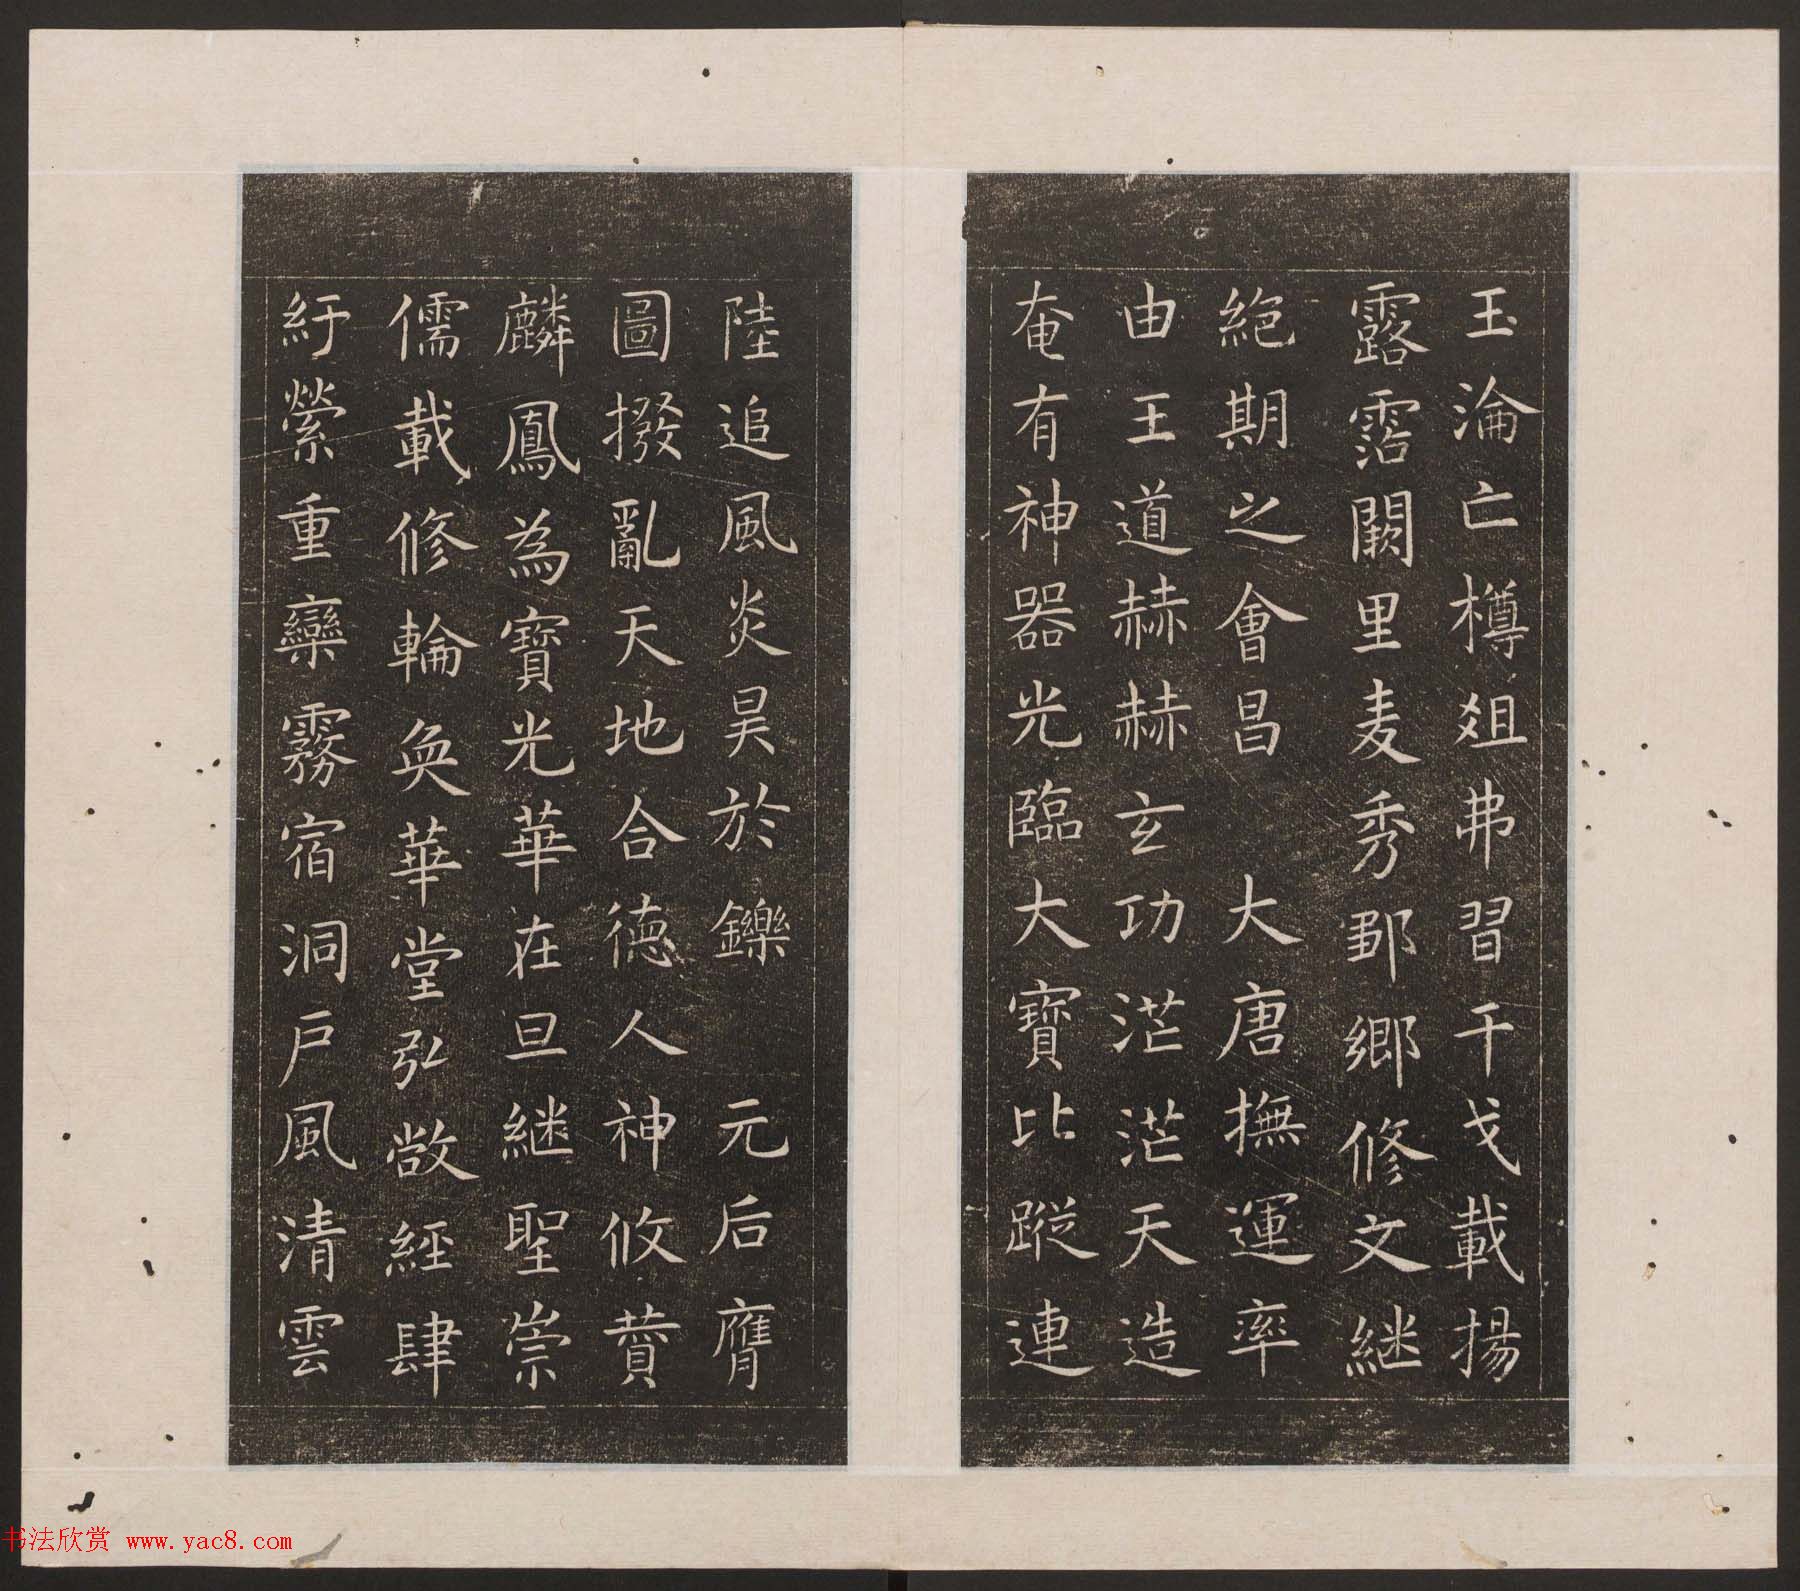 玉淪亡樽爼弗習干戈載揚
露霑闕里麦秀鄹鄉修文継
絶期之會昌 大唐撫運率
由王道赫赫玄功茫茫天造
奄有神器光臨大寶比蹤連
陸追風炎昊於鑠 元后膺
圖撥亂天地合德人神攸賛
麟鳳為寶光華在旦継聖崇
儒載修輪奐華堂弘敞經肆
紆縈重欒霧宿洞戶風清雲
书法欣赏 www.yac8.com